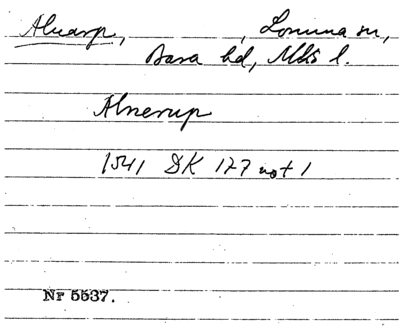 Alnarp, , Lomma sn,
Bara hd, Mlhs l.
Alnerup
1541 DK 177 not 1
Nr 5537.